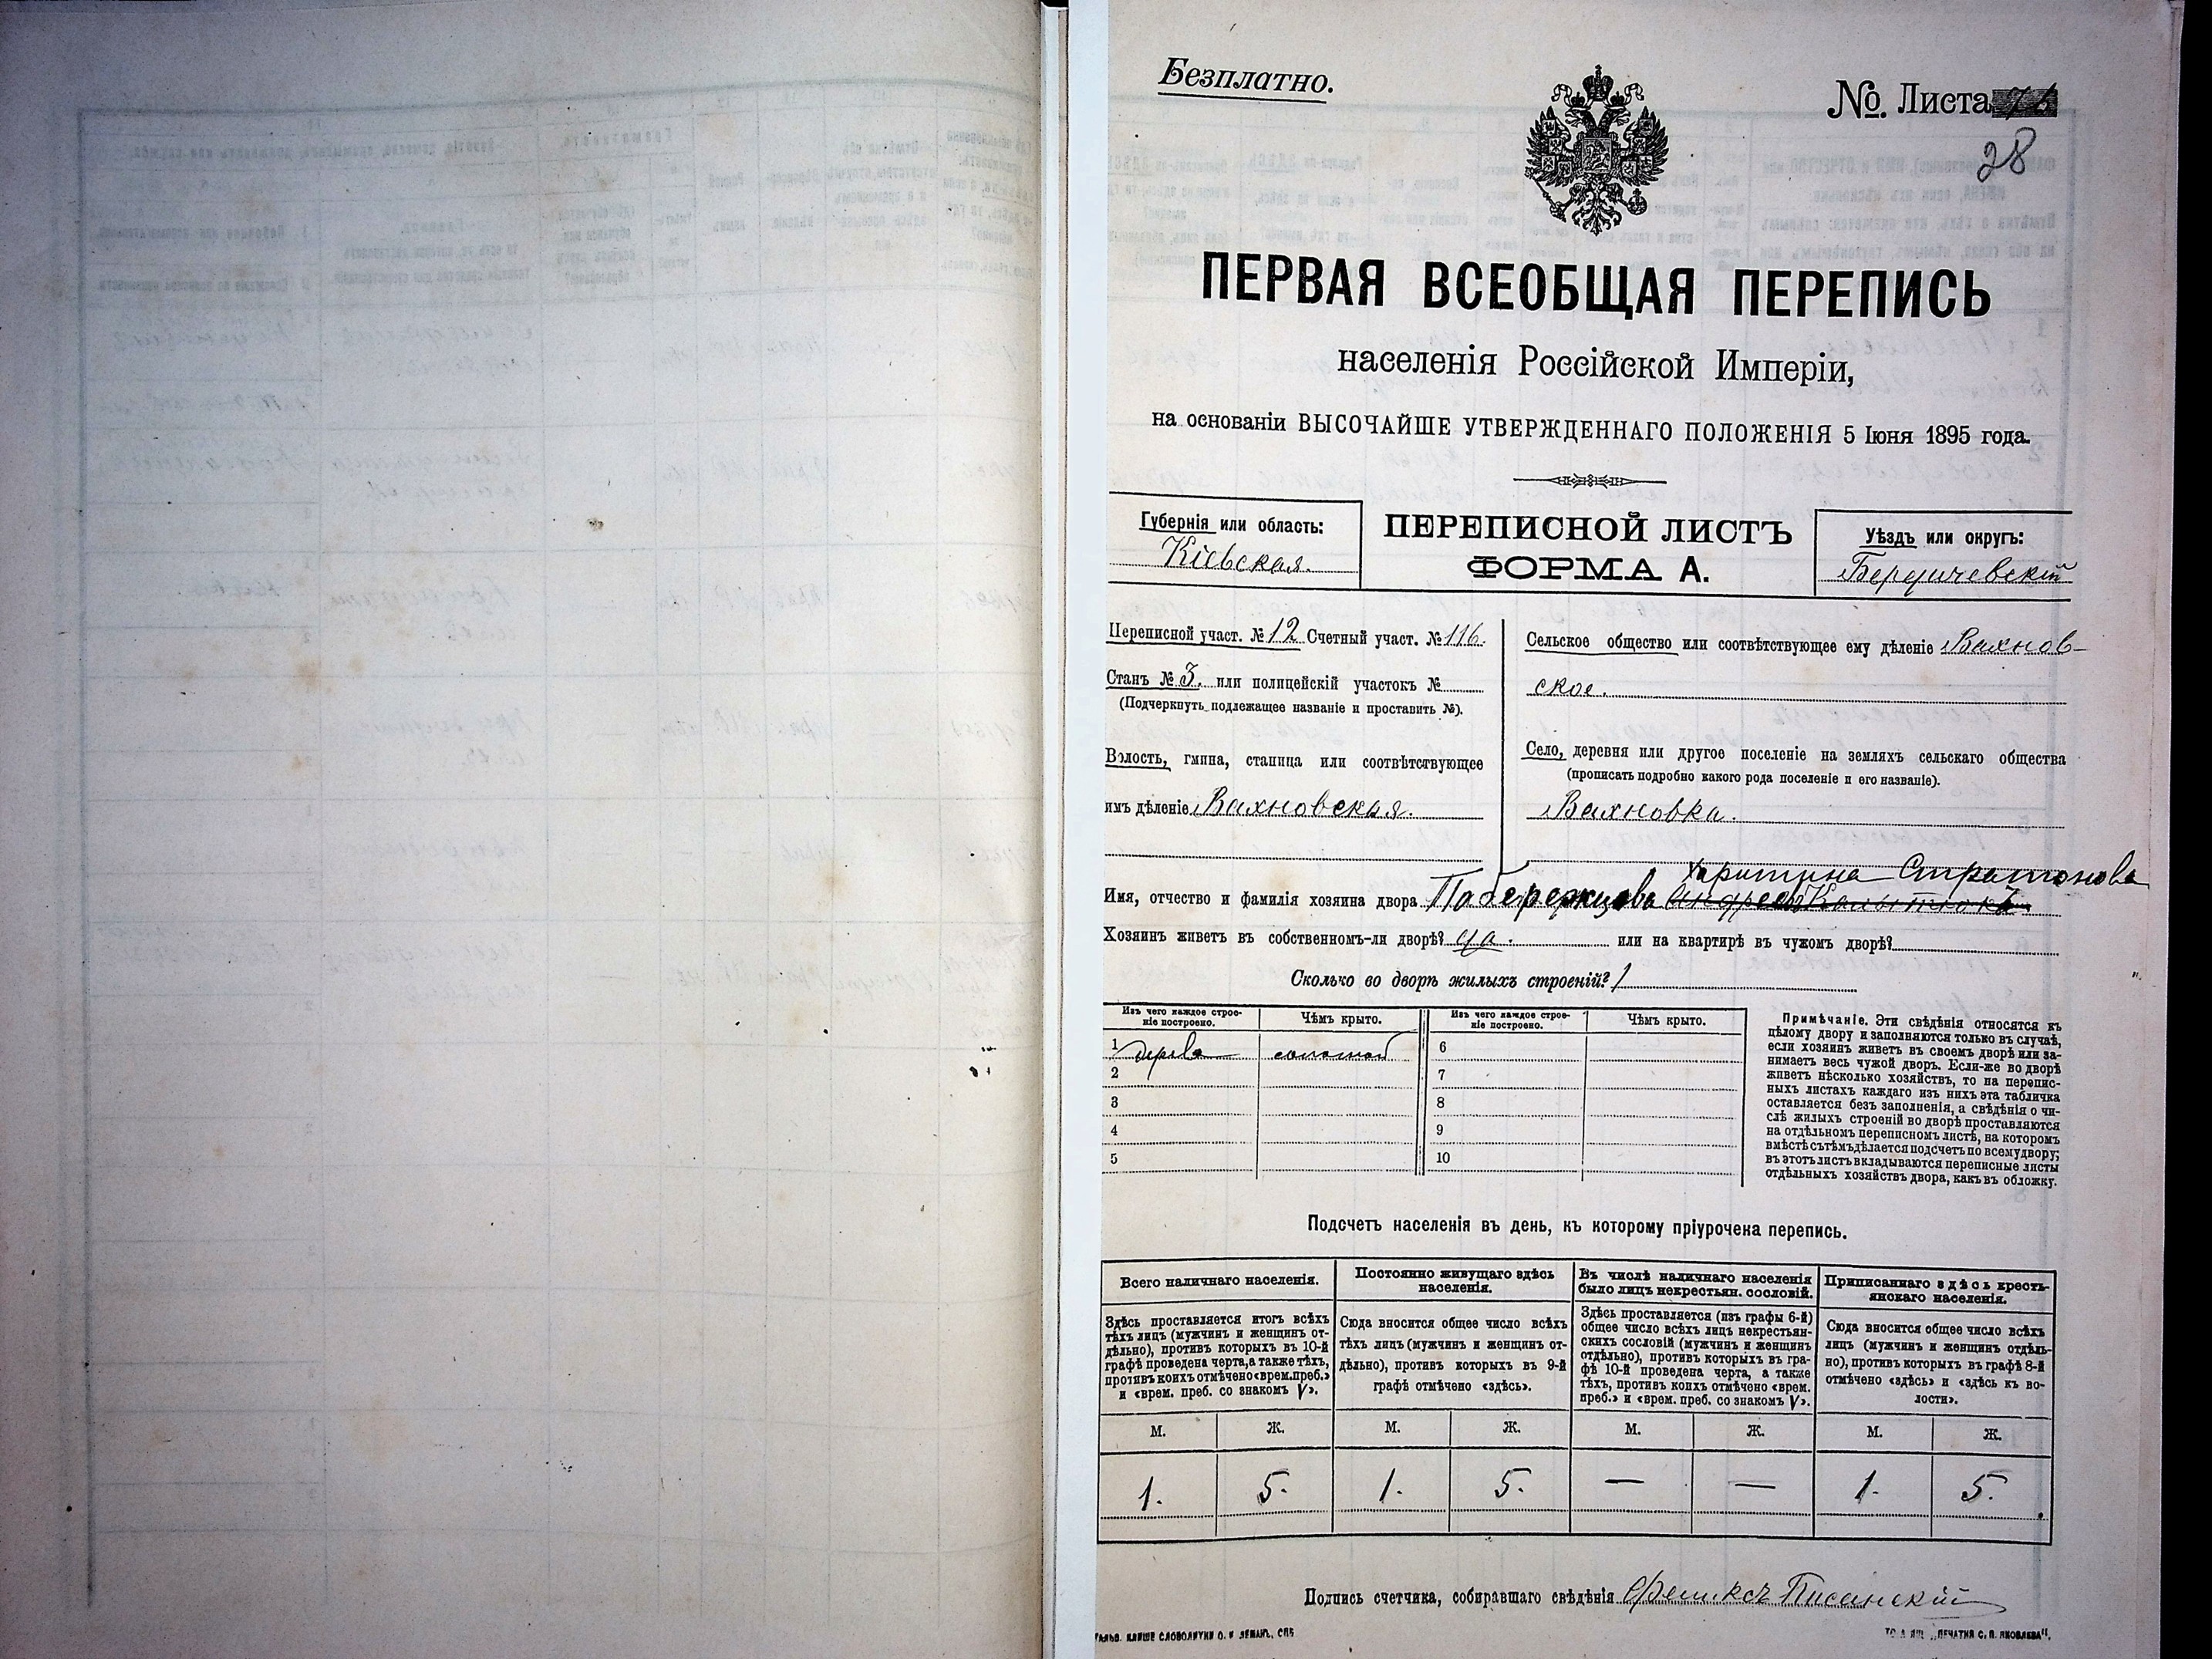 Безплатно.
№ Листа
28
ПЕРВАЯ ВСЕОБЩАЯ ПЕРЕПИСЬ
населенія Россійской Имперіи,
на основаніи ВЫСОЧАЙШЕ УТВЕРЖДЕННАГО ПОЛОЖЕНІЯ 5 Іюня 1895 года.
Губернія или область:
Кіевская.
ПЕРЕПИСНОЙ ЛИСТЪ
ФОРМА А.
Уѣздъ или округъ:
Бердичевскій
Переписной участ. № 12 Счетный участ. № 116.
Станъ № 3. или полицейскій участокъ №
(Подчеркнуть подлежащее названіе и проставить №).
Волость, гмина, станица или соотвѣтствующее
имъ дѣленіе Вахновская.
Сельское общество или соотвѣтствующее ему дѣленіе Вахнов-
ское.
Село, деревня или другое поселеніе на земляхъ сельскаго общества
(прописать подробно какого рода поселеніе и его названіе).
Вахновка.
Харитина Стратонова
Имя, отчество и фамилія хозяина двора Побережцова Андрей
Хозяинъ живетъ въ собственномъ-ли дворѣ? да. или на квартирѣ въ чужомъ дворѣ?
Сколько во дворѣ жилыхъ строеній? 1
Изъ чего каждое строе-
ніе построено.
Чѣмъ крыто.
Изъ чего каждое строе-
ніе построено.
Чѣмъ крыто.
1 дерева соломой 6
2 7
3 8
4 9
5 10
Примѣчаніе. Эти свѣдѣнія относятся къ
цѣлому двору и заполняются только въ случаѣ,
если хозяинъ живетъ въ своемъ дворѣ или за-
нимаетъ весь чужой дворъ. Если-же во дворѣ
живетъ нѣсколько хозяйствъ, то на перепис-
ныхъ листахъ каждаго изъ нихъ эта табличка
оставляется безъ заполненія, а свѣдѣнія о чи-
слѣ жилыхъ строеній во дворѣ проставляются
на отдѣльномъ переписномъ листѣ, на которомъ
вмѣстѣ съ тѣмъ дѣлается подсчетъ по всему двору;
въ этотъ листъ вкладываются переписные листы
отдѣльныхъ хозяйствъ двора, какъ въ обложку.
Подсчетъ населенія въ день, къ которому пріурочена перепись.
Всего наличнаго населенія.
Здѣсь проставляется итогъ всѣхъ
тѣхъ лицъ (мужчинъ и женщинъ от-
дѣльно), противъ которыхъ въ 10-й
графѣ проведена черта, а также тѣхъ,
противъ коихъ отмѣчено «врем. преб.»
и «врем. преб. со знакомъ V».
Постоянно живущаго здѣсь
населенія.
Сюда вносится общее число всѣхъ
тѣхъ лицъ (мужчинъ и женщинъ от-
дѣльно), противъ которыхъ въ 9-й
графѣ отмѣчено «здѣсь».
Въ числѣ наличнаго населенія
было лицъ некрестьян. сословій.
Здѣсь проставляется (изъ графы 6-й)
общее число всѣхъ лицъ некрестьян-
скихъ сословій (мужчинъ и женщинъ
отдѣльно), противъ которыхъ въ гра-
фѣ 10-й проведена черта, а также
тѣхъ, противъ коихъ отмѣчено «врем.
преб.» и «врем. преб. со знакомъ V».
Приписаннаго здѣсь кресть-
янскаго населенія.
Сюда вносится общее число всѣхъ
лицъ (мужчинъ и женщинъ отдѣль-
но), противъ которыхъ въ графѣ 8-й
отмѣчено «здѣсь» и «здѣсь къ во-
лости».
М. Ж. М. Ж. М. Ж. М. Ж.
1. 5. 1. 5. — — 1. 5.
Подпись счетчика, собиравшаго свѣдѣнія Феликсъ Писанскій
КЛИШЕ СЛОВОЛИТНИ О. И. ЛЕМАНЪ, СПБ
ПЕЧАТНИ С. П. ЯКОВЛЕВА".